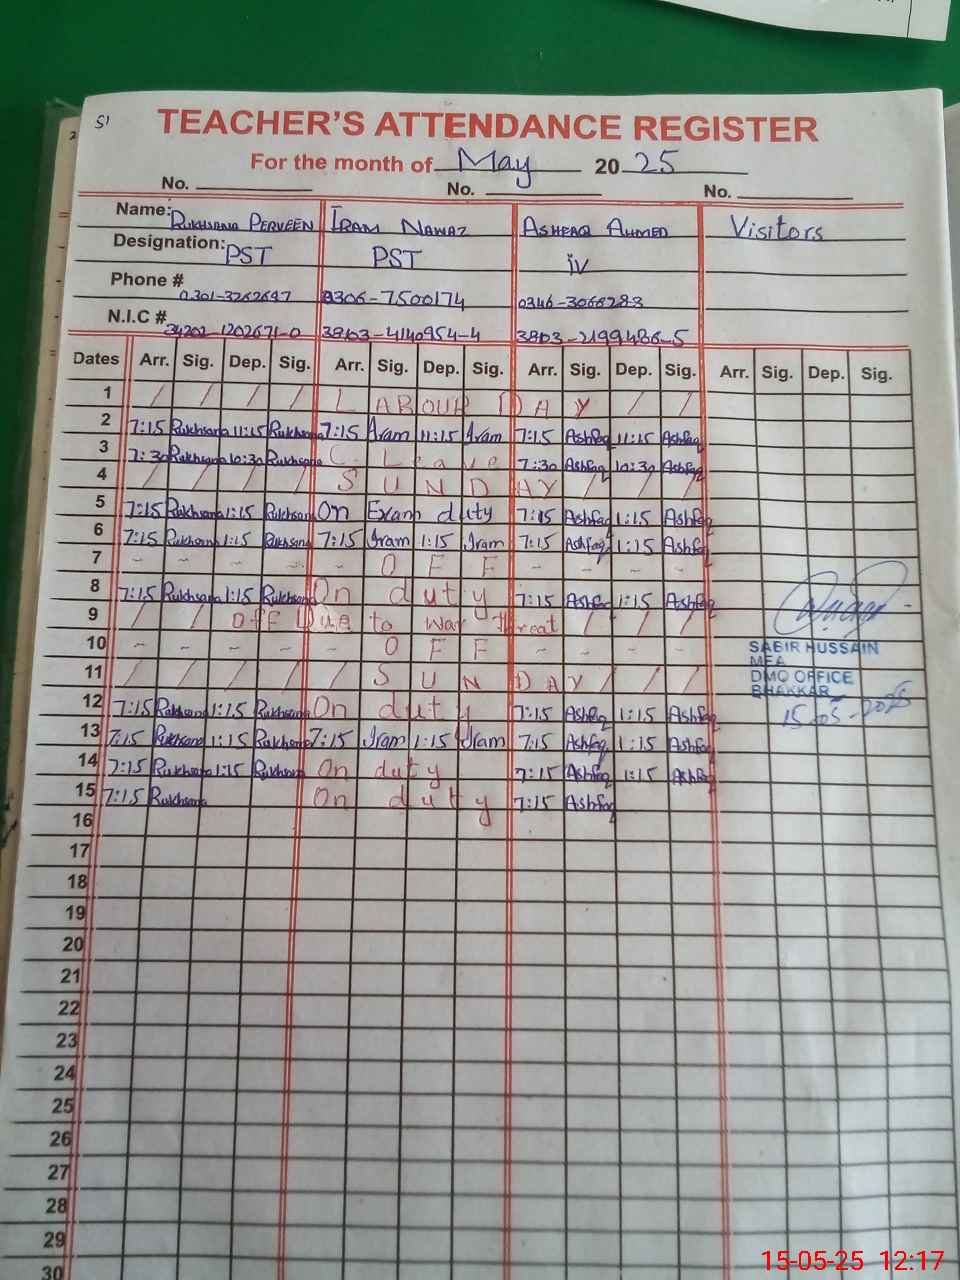 51
TEACHER'S ATTENDANCE REGISTER
For the month of May 2025
No. No. No.
Name: RUKHSANA PERVEEN IRAM NAWAZ ASHFAQ AHMED Visitors
Designation: PST PST iv
Phone # 0301-3262647 0306-7500174 0346-3066283
N.I.C # 34202-1202671-0 38103-4140954-4 38103-2199486-5
Dates Arr. Sig. Dep. Sig. Arr. Sig. Dep. Sig. Arr. Sig. Dep. Sig. Arr. Sig. Dep. Sig.
1 / / / / LABOUR DAY / /
2 7:15 Rukhsana 11:15 Rukhsana 7:15 Iram 11:15 Iram 7:15 Ashfaq 11:15 Ashfaq
3 7:30 Rukhsana 10:30 Rukhsana C. Leave 7:30 Ashfaq 10:30 Ashfaq
4 / / / / SUNDAY / / /
5 7:15 Rukhsana 1:15 Rukhsana On Exam duty 7:15 Ashfaq 1:15 Ashfaq
6 7:15 Rukhsana 1:15 Rukhsana 7:15 Iram 1:15 Iram 7:15 Ashfaq 1:15 Ashfaq
7 ~ ~ ~ ~ ~ OFF ~ ~ ~ ~
8 7:15 Rukhsana 1:15 Rukhsana On duty 7:15 Ashfaq 1:15 Ashfaq
9 / / Off Due to war threat / / /
10 ~ ~ ~ ~ ~ OFF ~ ~ ~ ~
SABIR HUSSAIN
MEA
11 / / / / / SUNDAY / / /
DMO OFFICE
BHAKKAR
12 7:15 Rukhsana 1:15 Rukhsana On duty 7:15 Ashfaq 1:15 Ashfaq
15-05-2025
13 7:15 Rukhsana 1:15 Rukhsana 7:15 Iram 1:15 Iram 7:15 Ashfaq 1:15 Ashfaq
14 7:15 Rukhsana 1:15 Rukhsana On duty 7:15 Ashfaq 1:15 Ashfaq
15 7:15 Rukhsana On duty 7:15 Ashfaq
16
17
18
19
20
21
22
23
24
25
26
27
28
29
30
15-05-25 12:17